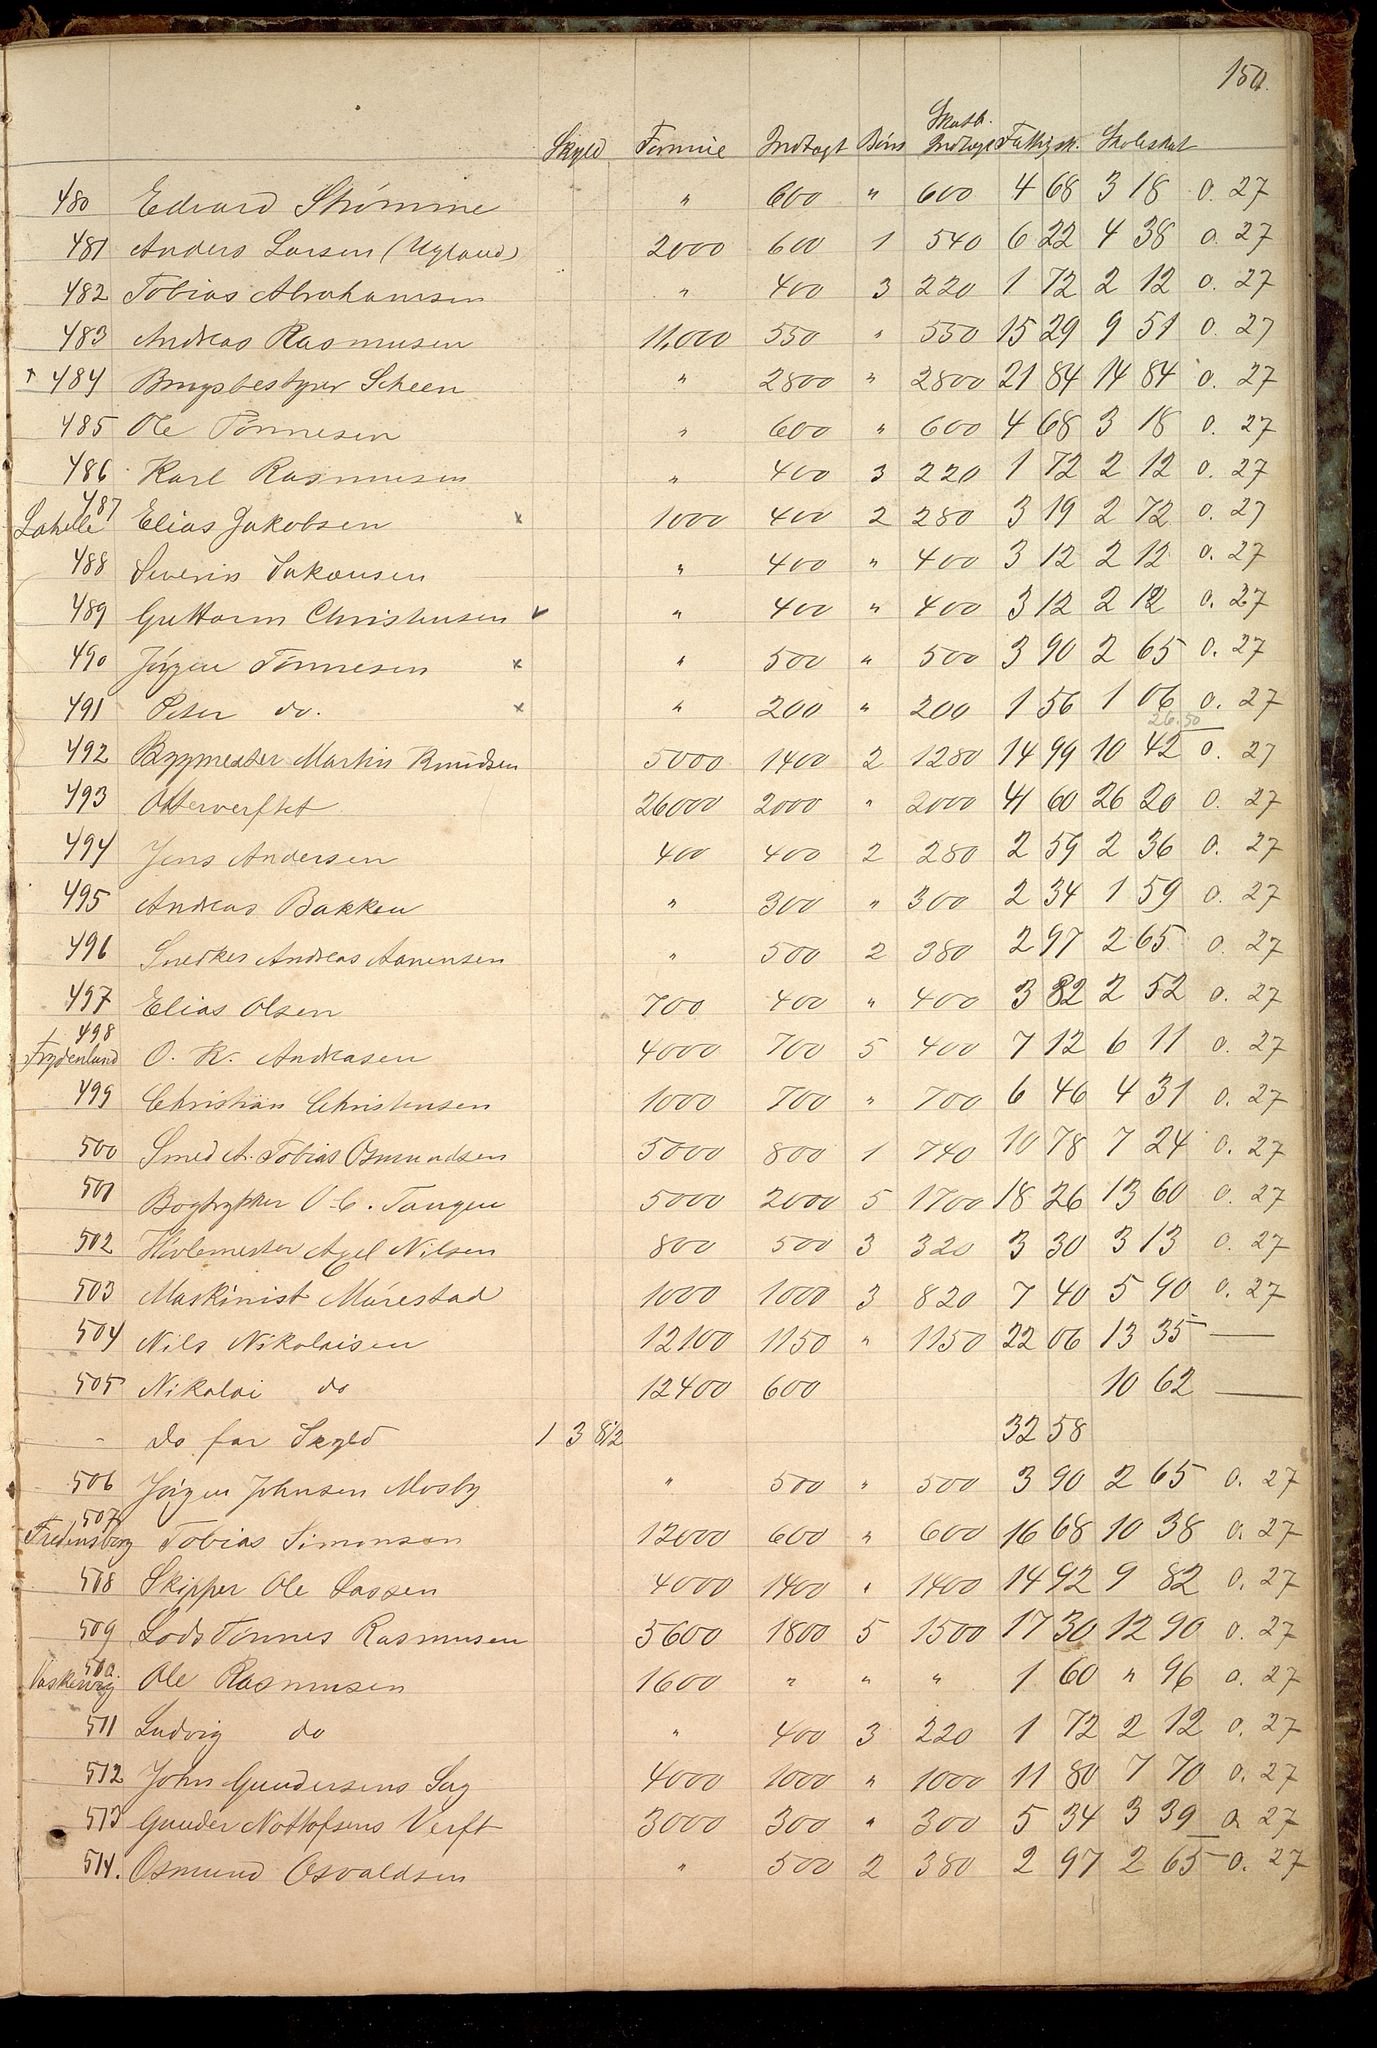 150.
Skatb.
Skyld Formue Indtægt Børn Indtægt Fattigsk. Skoleskat
480 Edvard Strømme " 600 " 600 4 68 3 18 0. 27
481 Anders Larsen (Ugland) 2000 600 1 540 6 22 4 38 0. 27
482 Tobias Abrahamsen " 400 3 220 1 72 2 12 0. 27
483 Andreas Rasmusen 11,000 550 " 550 15 29 9 51 0. 27
484 Brugsbestyrer Scheen " 2800 " 2800 21 84 14 84 0. 27
485 Ole Tønnesen " 600 " 600 4 68 3 18 0. 27
486 Karl Rasmusen " 400 3 220 1 72 2 12 0. 27
487
Lahelle Elias Jakobsen x 1000 400 2 280 3 19 2 72 0. 27
488 Severin Sakæusen " 400 " 400 3 12 2 12 0. 27
489 Guttorm Christensen v " 400 " 400 3 12 2 12 0. 27
490 Jørgen Tønnesen x " 500 " 500 3 90 2 65 0. 27
491 Peter do. x " 200 " 200 1 56 1 06 0. 27
26.50
492 Byggmester Martin Knudsen 5000 1400 2 1280 14 99 10 42 0. 27
493 Otterverftet 26000 2000 " 2000 41 60 26 20 0. 27
494 Jens Andersen 400 400 2 280 2 59 2 36 0. 27
495 Andreas Bakken " 300 " 300 2 34 1 59 0. 27
496 Snedker Andreas Aanensen " 500 2 380 2 97 2 65 0. 27
497 Elias Olsen 700 400 " 400 3 82 2 52 0. 27
498
Frydenlund O. K. Andreasen 4000 700 5 400 7 12 6 11 0. 27
499 Christian Christensen 1000 700 " 700 6 46 4 31 0. 27
500 Smed A. Tobias Osmundsen 5000 800 1 740 10 78 7 24 0. 27
501 Bogtrykker O. C. Tangen 5000 2000 5 1700 18 26 13 60 0. 27
502 Høvlemester Axel Nilsen 800 500 3 320 3 30 3 13 0. 27
503 Maskinist Mårestad 1000 1000 3 820 7 40 5 90 0. 27
504 Nils Nikolaisen 12100 1150 " 1150 22 06 13 35 —
505 Nikolai do 12400 600 10 62 —
- do for Skyld 1 3 8½ 32 58
506 Jørgen Johnsen Mosby " 500 " 500 3 90 2 65 0. 27
507
Fredensborg Tobias Simonsen 12000 600 " 600 16 68 10 38 0. 27
508 Skipper Ole Lassen 4000 1400 " 1400 14 92 9 82 0. 27
509 Lods Tønnes Rasmusen 5600 1800 5 1500 17 30 12 90 0. 27
510.
Ole Rasmusen 1600 " " " 1 60 " 96 0. 27
511 Ludvig do " 400 3 220 1 72 2 12 0. 27
512 John Gundersens Sag 4000 1000 " 1000 11 80 7 70 0. 27
513 Gunder Nottofsens Verft 3000 300 " 300 5 34 3 39 0 27
514. Osmund Osvaldsen " 500 2 380 2 97 2 65 0. 27